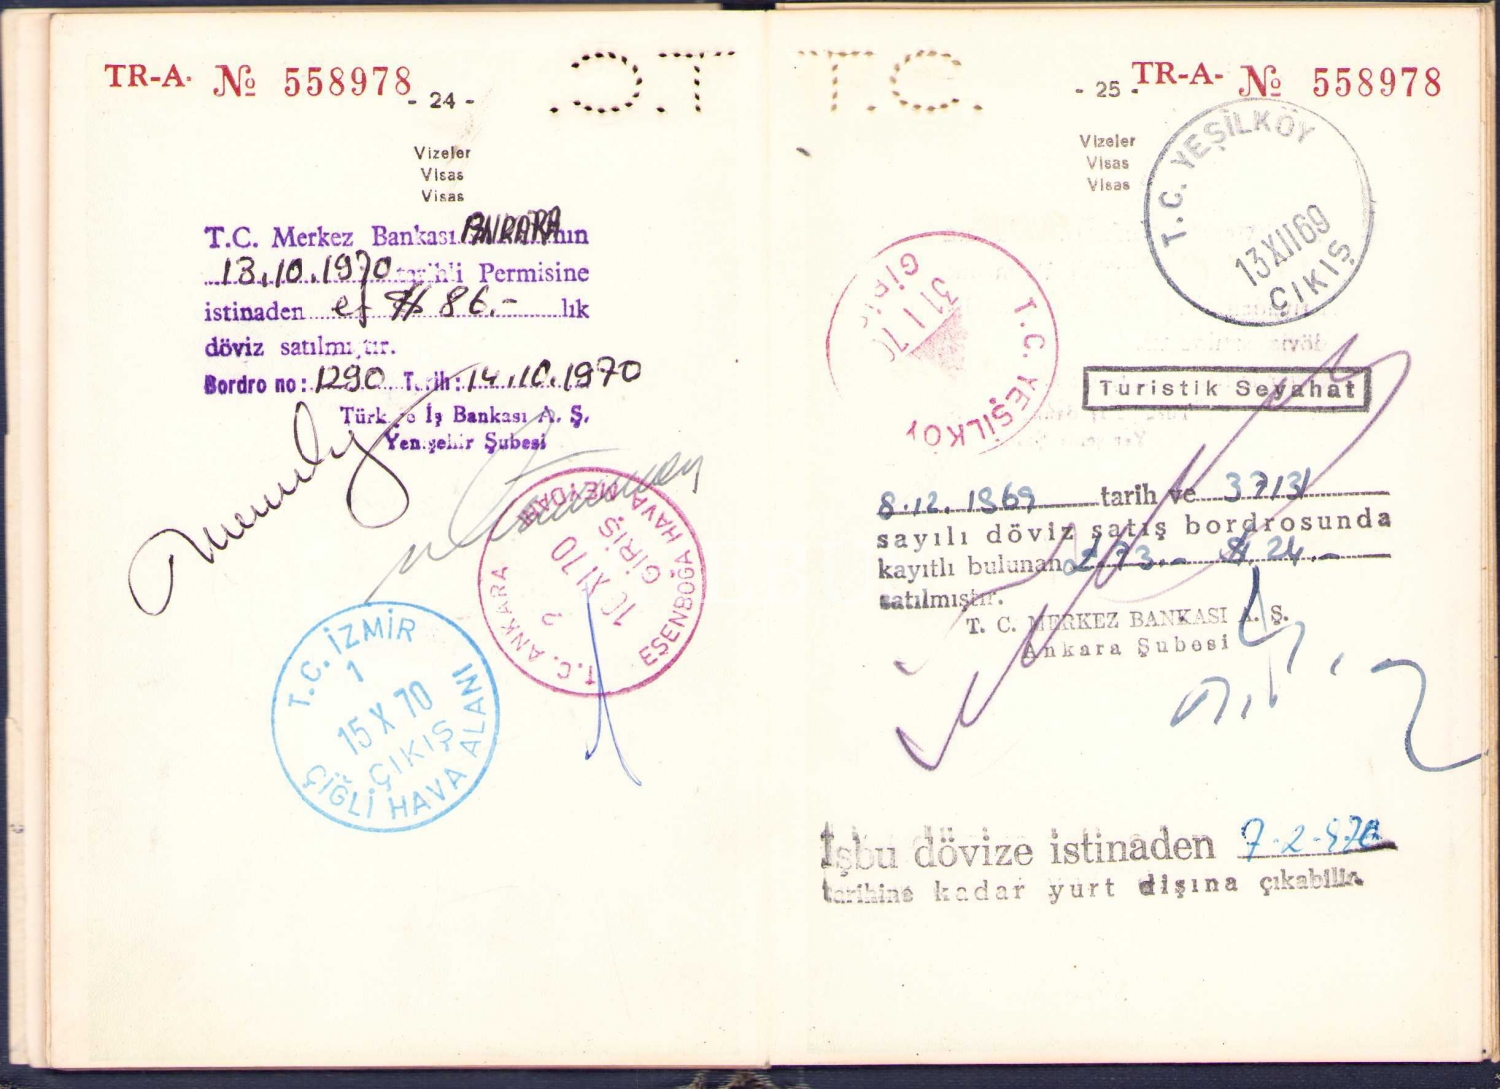 TR-A. № 558978
- 24 -
Vizeler
Visas
Visas
T.C. Merkez Bankası ANKARA nın
13.10.1970 tarihli Permisine
istinaden ef $ 86.- lık
döviz satılmıştır.
Bordro no: 1290 Tarih: 14.10.1970
Türkiye İş Bankası A. Ş.
Yenişehir Şubesi
T.C. ANKARA
ESENBOĞA HAVA MEYDANI
2
10 XI 70
GİRİŞ
T.C. İZMİR
1
15 X 70
ÇIKIŞ
ÇİĞLİ HAVA ALANI
T.C.
T.C.
- 25 -
TR-A- № 558978
Vizeler
Visas
Visas
T.C. YEŞİLKÖY
13 XII 69
ÇIKIŞ
T.C. YEŞİLKÖY
31 I 70
GİRİŞ
Turistik Seyahat
8.12.1969 tarih ve 37131
sayılı döviz satış bordrosunda
kayıtlı bulunan 273.- $ 24.-
satılmıştır.
T. C. MERKEZ BANKASI A. Ş.
Ankara Şubesi
İşbu dövize istinaden 7-2-970
tarihine kadar yurt dışına çıkabilir.